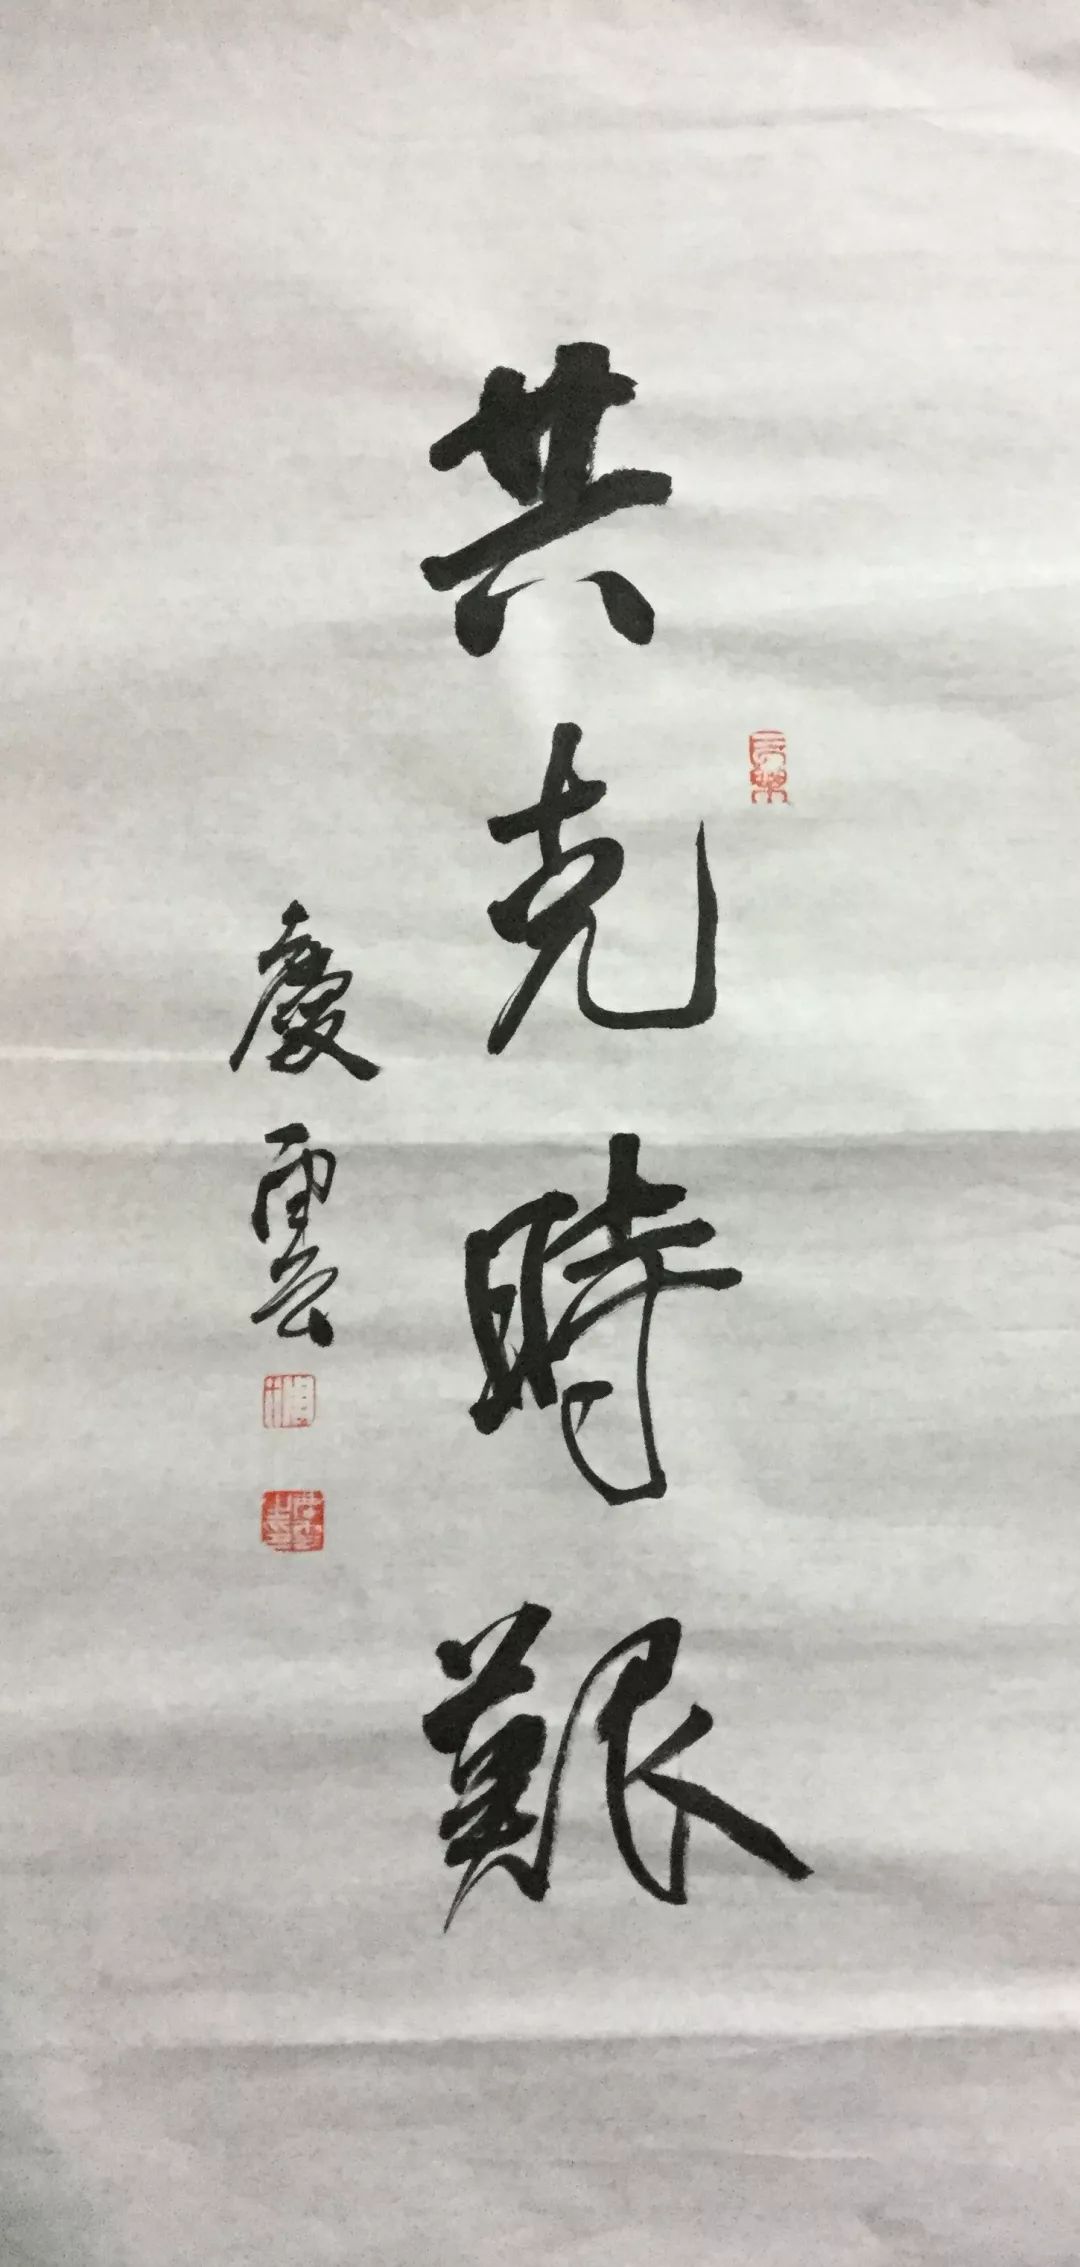 共克時艱
慶雲